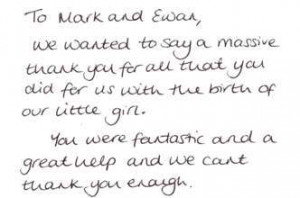 To Mark and Ewan,
we wanted to say a massive
thank you for all that you
did for us with the birth of
our little girl.
You were fantastic and a
great help and we cant
thank you enough.